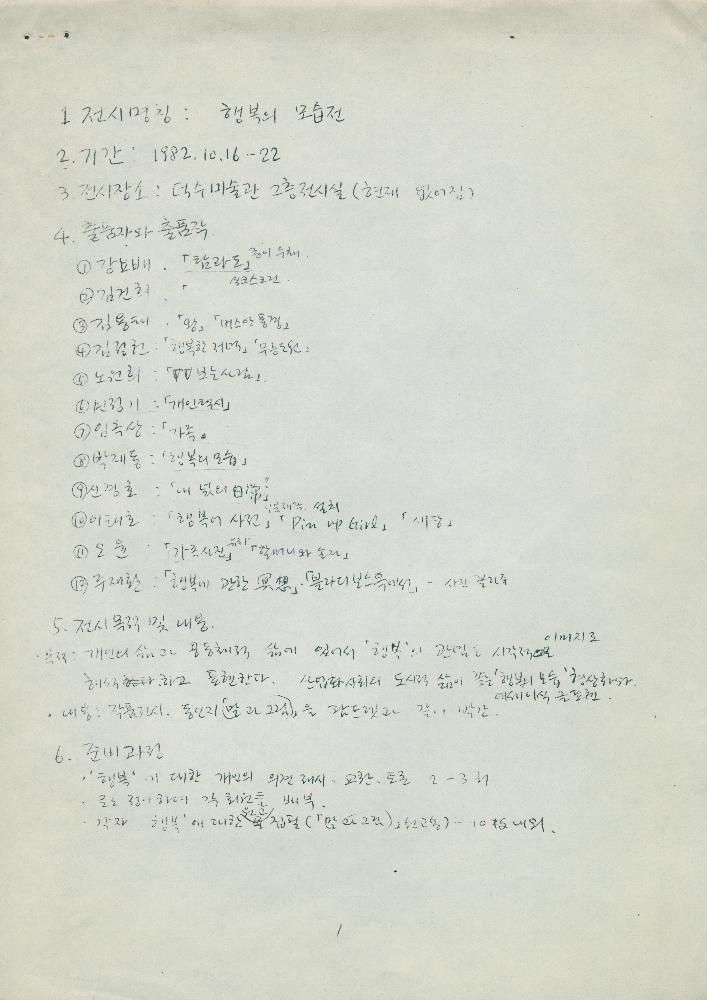 1. 전시명칭 : 행복의 모습전
2. 기간 : 1982.10.16 - 22
3. 전시장소 : 덕수미술관 2층전시실 (현재 없어짐)
4. 출품자와 출품작.
① 강요배 . 「탐라도」 종이 우채.
② 김건희 . 「 실크스크린.
③ 김용태 . 「왕」 「버스안 풍경」
④ 김정헌 : 「행복한 저녁」 「무릉도원」
⑤ 노원희 : 「TV 보는 사람」.
⑥ 민정기 : 「개인택시」
⑦ 임옥상 : 「가족」
⑧ 박재동 : 「행복의 모습」
⑨ 신경호 : 「내 넋의 日常」?
⑩ 이태호 : 「행복어 사전」 설치 「Pin up Girl」 「세탁」
⑪ 오윤 : 「가족사진」 유화 「할머니와 손자」
⑫ 주재환 : 「행복에 관한 冥想」. 「블라디보스톡에서」 - 사진 꼴라쥬
5. 전시목적 및 내용.
· 목적 : 개인의 삶과 공동체적 삶에 있어서 '행복'의 관념을 시각적 이미지로
해석하고 표현한다. 산업화사회의 도시적 삶이 꿈꾸는 '행복의 모습' 형상화하다.
에세이식 글표현.
· 내용 : 작품전시. 동인지 (말과 그림)을 팜플렛과 같이 발간.
6. 준비과정
· '행복'에 대한 개인의 의견 제시. 교환. 토론 2-3회
· 글로 정리하여 각 회원들 배부.
· 각자 '행복'에 대한 원고 집필 (「말과 그림」, 원고용) - 10매 내외.
1